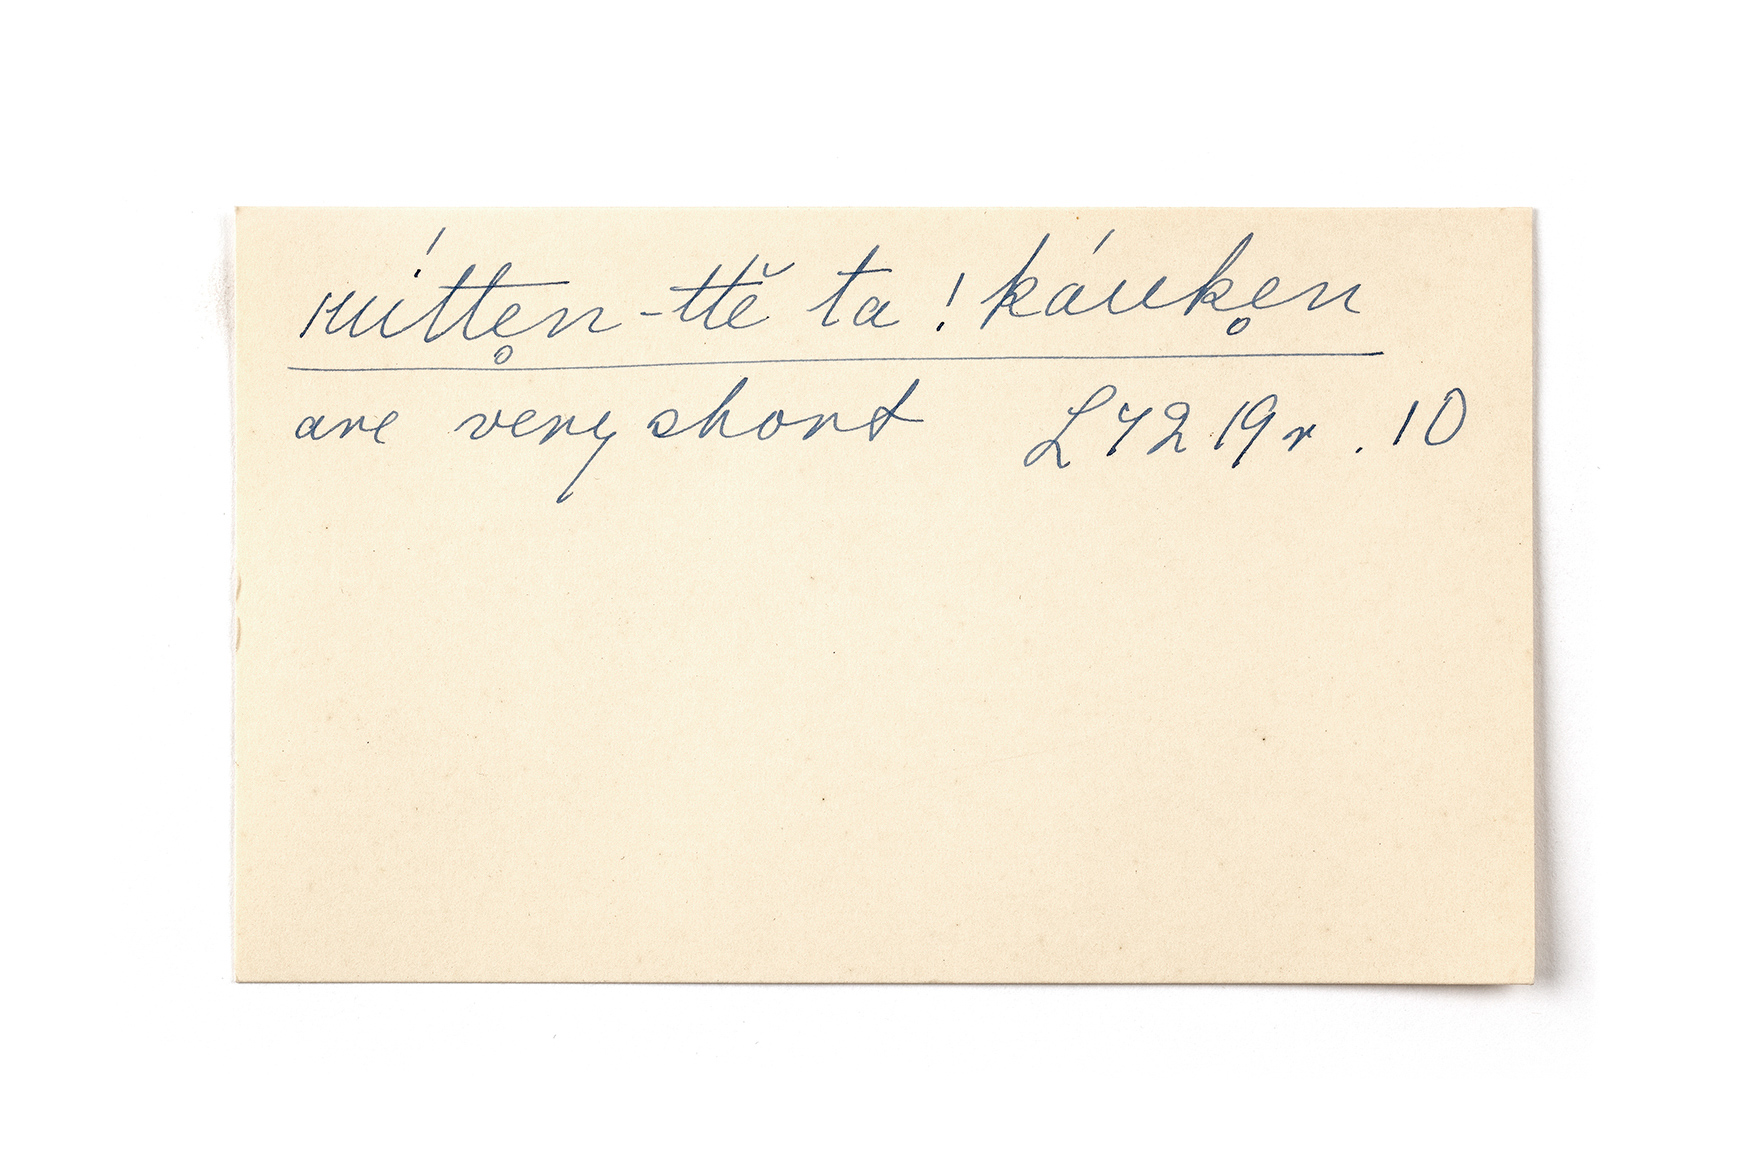 ǁuítte̥n-ttĕ ta !káuke̥n
are very short L 72 19 r . 10